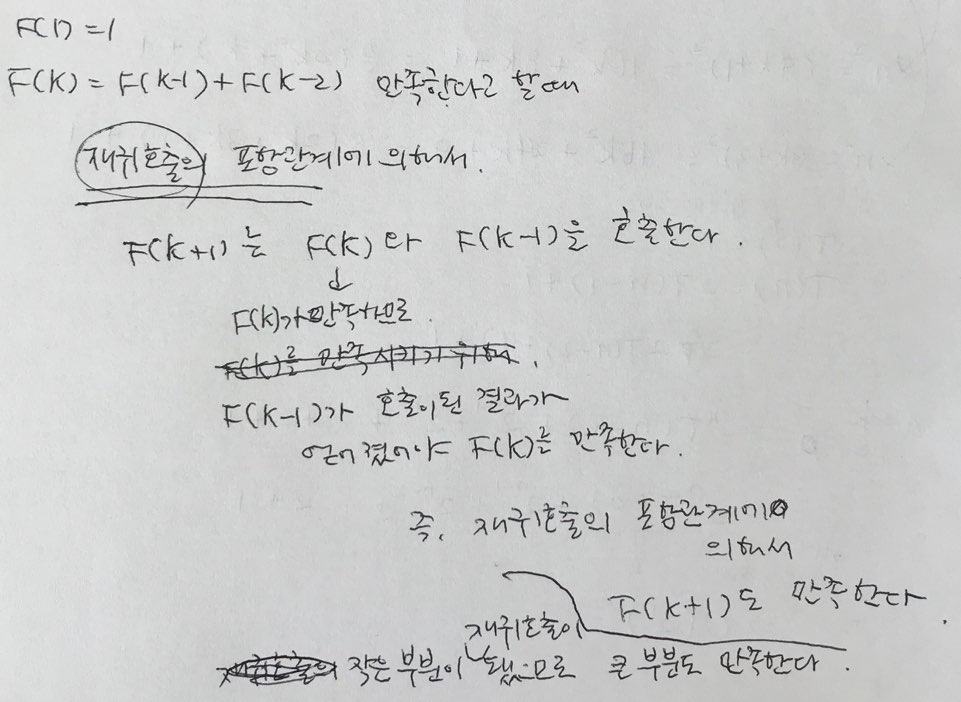 F(1) = 1
F(k) = F(k-1) + F(k-2) 만족한다고 할때
재귀호출의 포함관계에 의해서.
F(k+1)는 F(k)와 F(k-1)을 호출한다.
↓
F(k)가 만족하므로.
F(k)를 만족시키기 위해.
F(k-1)가 호출이된 결과가
얻어졌어야 F(k)를 만족한다.
즉, 재귀호출의 포함관계에
의해서
F(k+1)도 만족한다.
재귀호출이
작은 부분이 됐으므로 큰 부분도 만족한다.